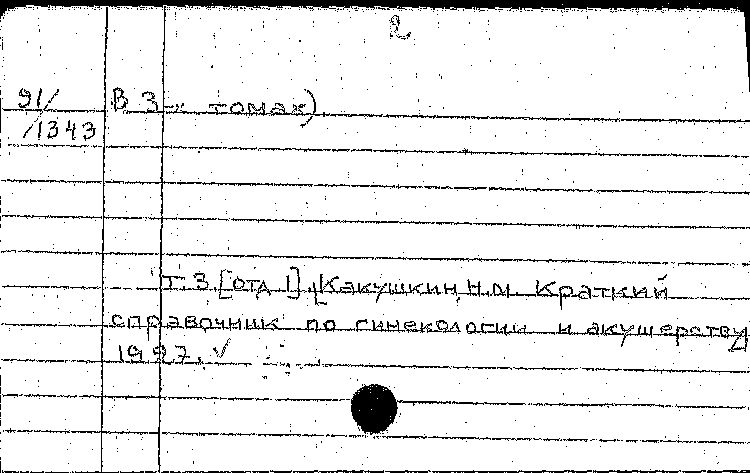 2
91/
/1343
В 3-х томах).
Т. 3. [отд 1]. [Какушкин, Н.М. Краткий
справочник по гинекологии и акушерству
1927. ✓